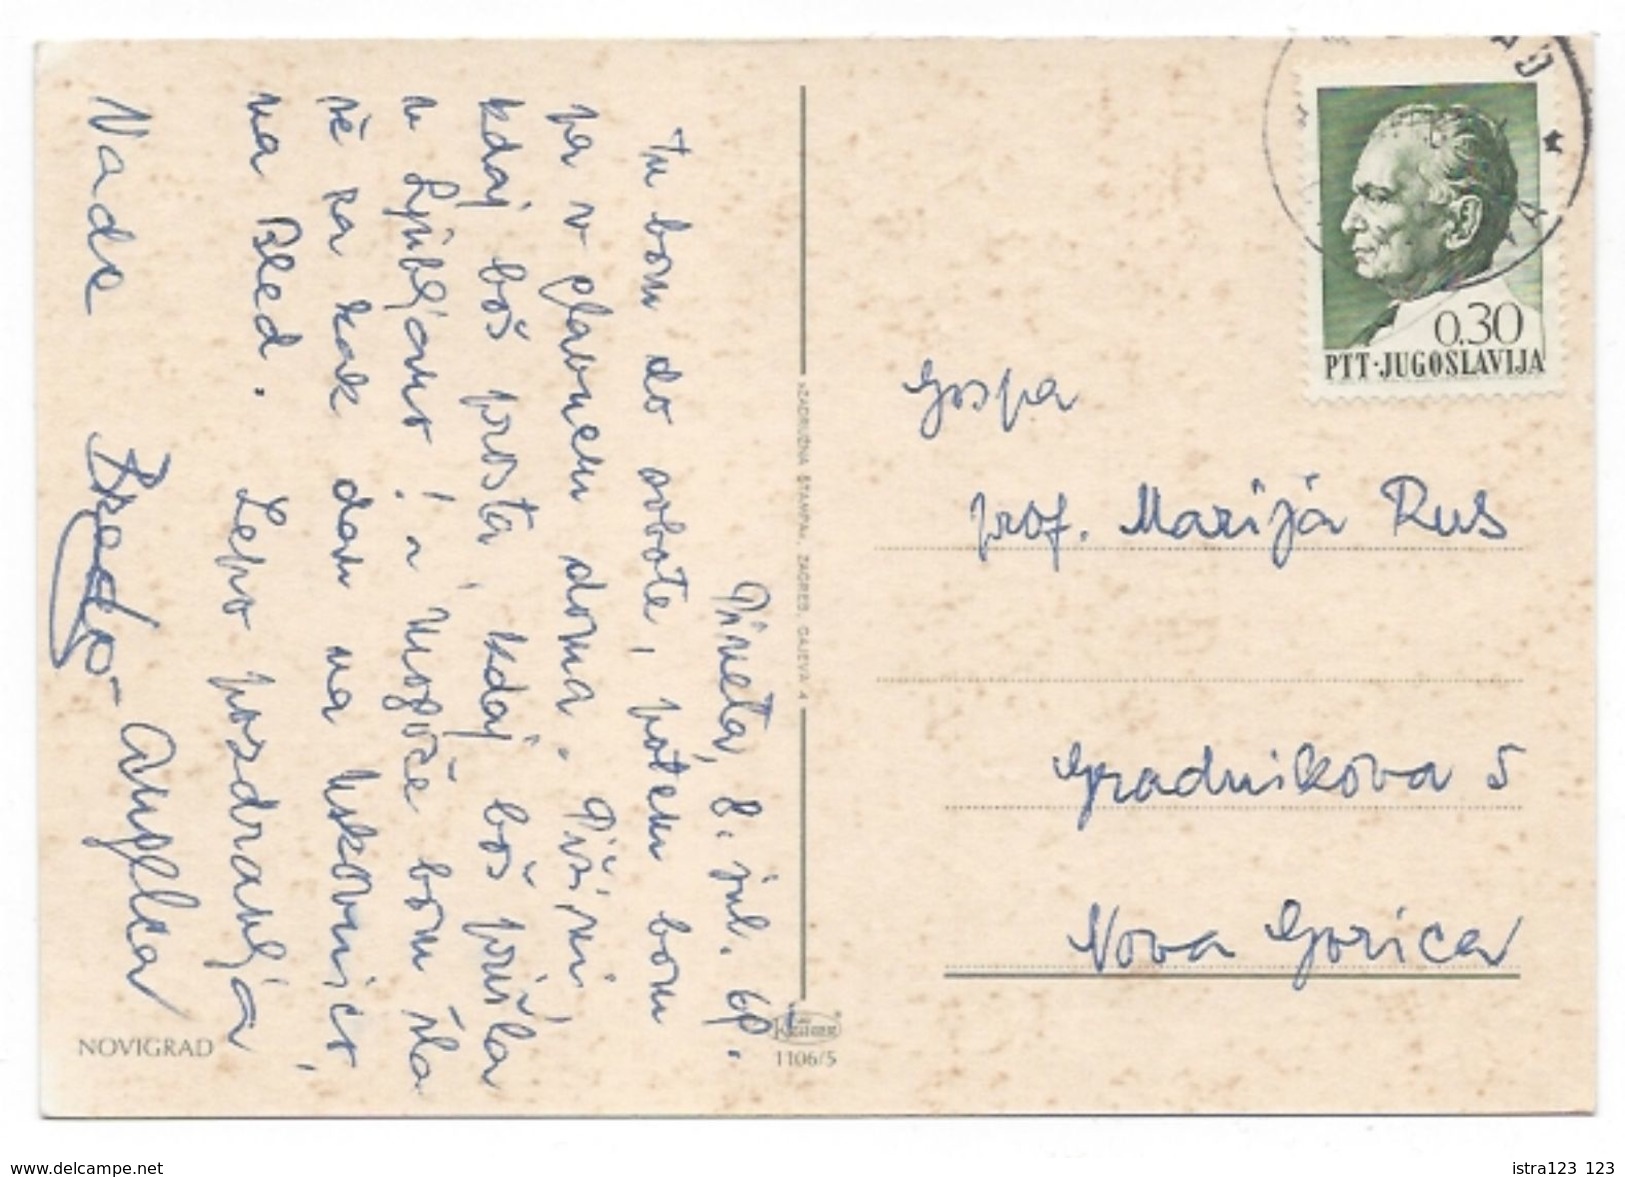 Pineta, 8. jul. 69.
Tu bom do sobote, potem bom
pa v glavnem doma. Piši mi,
kdaj boš prosta, kdaj boš prišla
v Ljubljano! – Mogoče bom šla
še za kak dan na Uskovnico,
na Bled. Lepo pozdravlja
Vada
NOVIGRAD
»ZADRUŽNA ŠTAMPA«, ZAGREB, GAJEVA 4
1106/5
0.30
PTT·JUGOSLAVIJA
Gospa
prof. Marija Rus
Gradnikova 5
Nova Gorica
www.delcampe.net
istra123 123